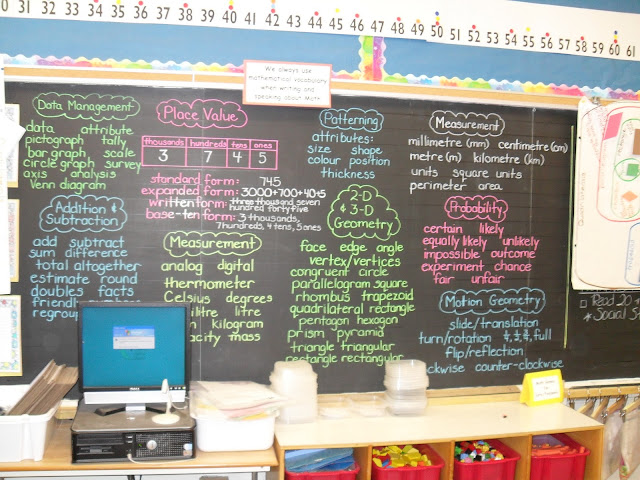 30 31 32 33 34 35 36 37 38 39 40 41 42 43 44 45 46 47 48 49 50 51 52 53 54 55 56 57 58 59 60 61
We always use
mathematical vocabulary
when writing and
speaking about Math!
Data Management
data attribute
pictograph tally
bar graph scale
circle graph survey
axis analysis
Venn diagram
Addition &
Subtraction
add subtract
sum difference
total altogether
estimate round
doubles facts
regroup
Place Value
thousands hundreds tens ones
3 7 4 5
standard form: 745
expanded form: 3000+700+40+5
written form: three thousand seven
hundred forty five
base-ten form: 3 thousands,
7 hundreds, 4 tens, 5 ones
Measurement
analog digital
thermometer
Celsius degrees
litre
kilogram
mass
Patterning
attributes:
size shape
colour position
thickness
2-D
& 3-D
Geometry
face edge angle
vertex/vertices
congruent circle
parallelogram square
rhombus trapezoid
quadrilateral rectangle
pentagon hexagon
prism pyramid
triangle triangular
rectangle rectangular
Measurement
millimetre (mm) centimetre (cm)
metre (m) kilometre (km)
units square units
perimeter area
Probability
certain likely
equally likely unlikely
impossible outcome
experiment chance
fair unfair
Motion Geometry
slide/translation
turn/rotation ¼, ½, ¾, full
flip/reflection
counter-clockwise
Read 20
DELL